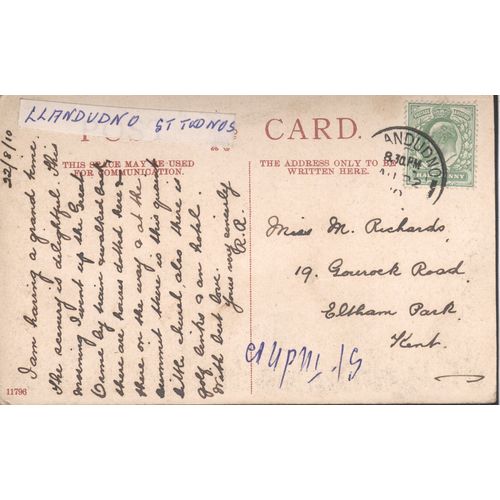 LLANDUDNO ST TUDNOS
CARD.
THIS SPACE MAY BE USED
FOR COMMUNICATION.
THE ADDRESS ONLY TO BE
WRITTEN HERE.
ANDUDNO
8.30 PM
22/8/10
I am having a grand time.
The scenery is delightful. This
morning I went up the Great
Orme by tram & walked back
there are houses dotted here &
there on the way & at the
summit there is this quaint
little church, also there is
golf links & an hotel.
With best love.
Yours very sincerely
R.A.
Miss M. Richards,
19. Gourock Road,
Eltham Park,
Kent.
St Tudno
11796